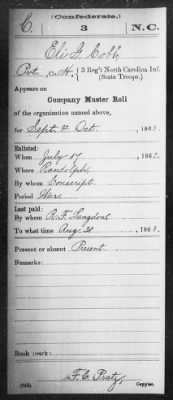 (Confederate.)
C. 3 N.C.
Eli F. Cobb
Pvt., Co. H, 3 Reg't North Carolina Inf.
(State Troops.)
Appears on
Company Muster Roll
of the organization named above,
for Sept. & Oct., 1863.
Enlisted:
When July 17, 1862.
Where Randolph
By whom Conscript
Period War
Last paid:
By whom R. F. Langdon
To what time Aug. 31, 1863.
Present or absent Present
Remarks:
Book mark:
F. C. Pratz
Copyist.